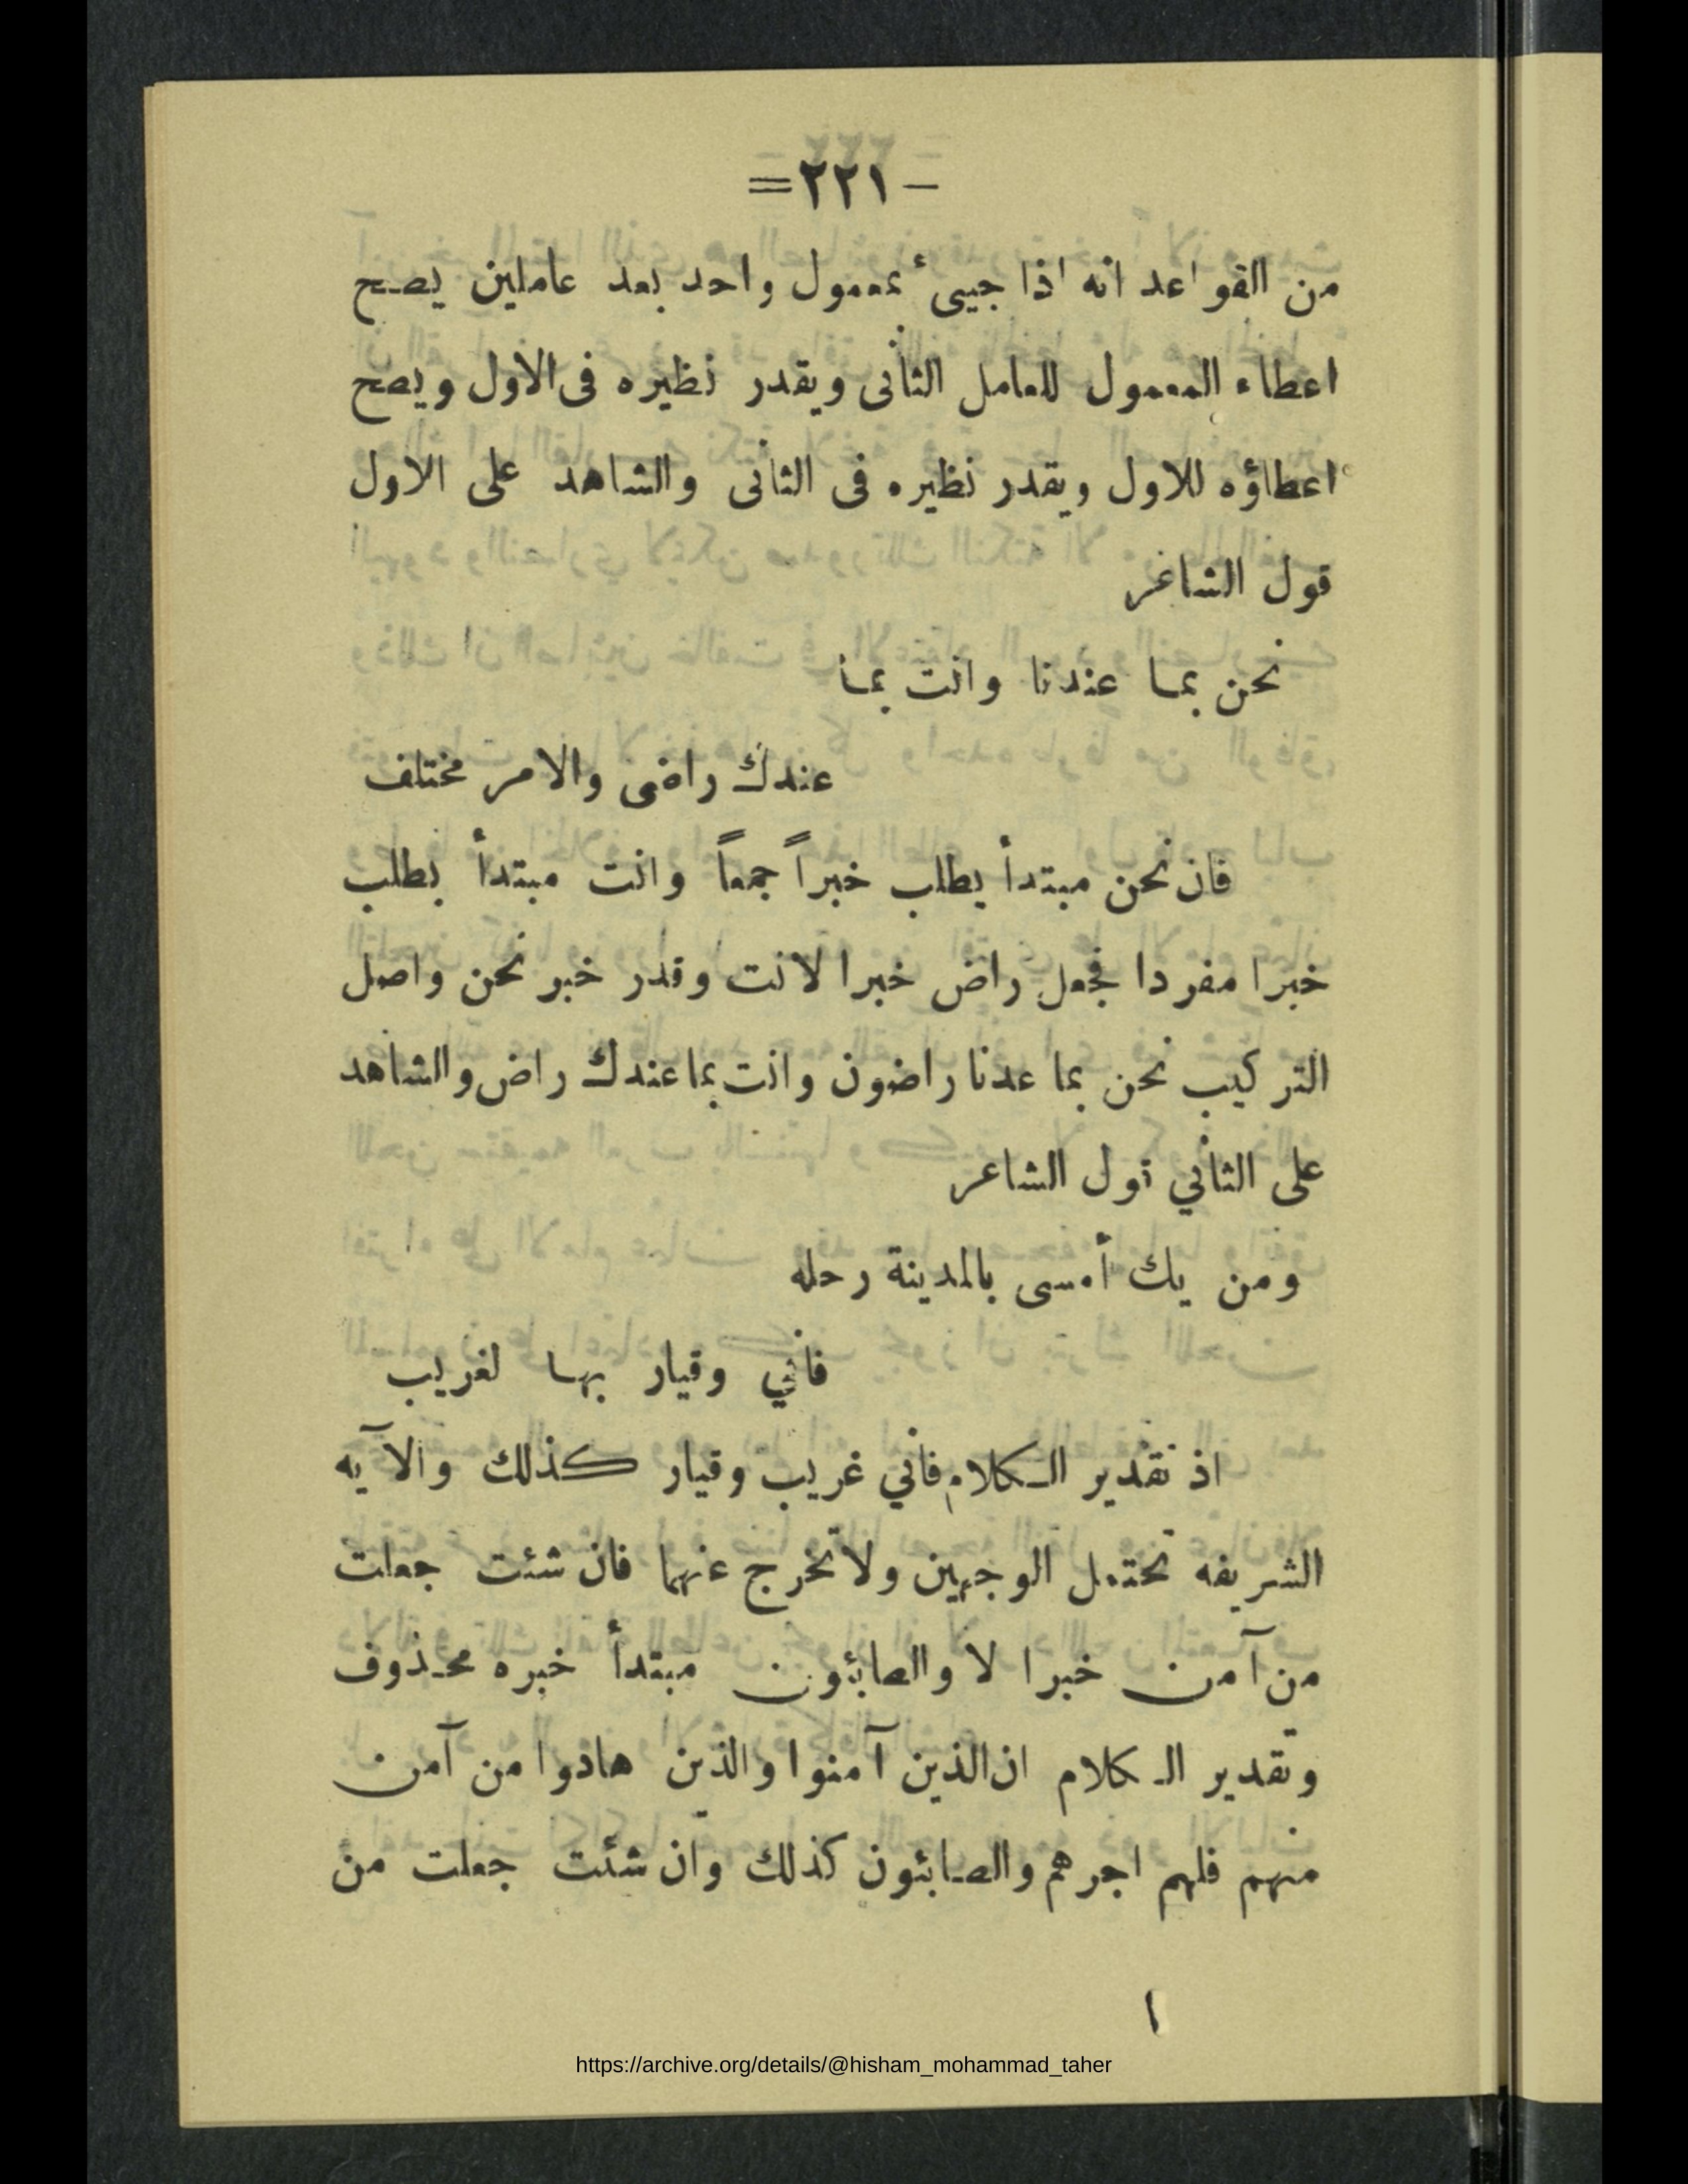 – ٢٢١ =
من القواعد انه اذا جيىء بمعمول واحد بعد عاملين يصح
اعطاء المعمول للعامل الثانى ويقدر نظيره فى الاول ويصح
اعطاؤه للاول ويقدر نظيره فى الثانى والشاهد على الاول
قول الشاعر
نحن بما عندنا وانت بما
عندك راضى والامر مختلف
فان نحن مبتدأ يطلب خبراً جمعاً وانت مبتدأ يطلب
خبرا مفردا فجعل راض خبرا لانت وقدر خبر نحن واصل
التركيب نحن بما عدنا راضون وانت بما عندك راض والشاهد
على الثاني قول الشاعر
ومن يك أمسى بالمدينة رحله
فاني وقيار بها لغريب
اذ تقدير الكلام فاني غريب وقيار كذلك والآيه
الشريفه تحتمل الوجهين ولا تخرج عنهما فان شئت جعلت
من آمن خبرا لا والصابئون مبتدأ خبره محذوف
وتقدير الكلام ان الذين آمنوا والذين هادوا من آمن
منهم فلهم اجرهم والصابئون كذلك وان شئت جعلت من
١
https://archive.org/details/@hisham_mohammad_taher